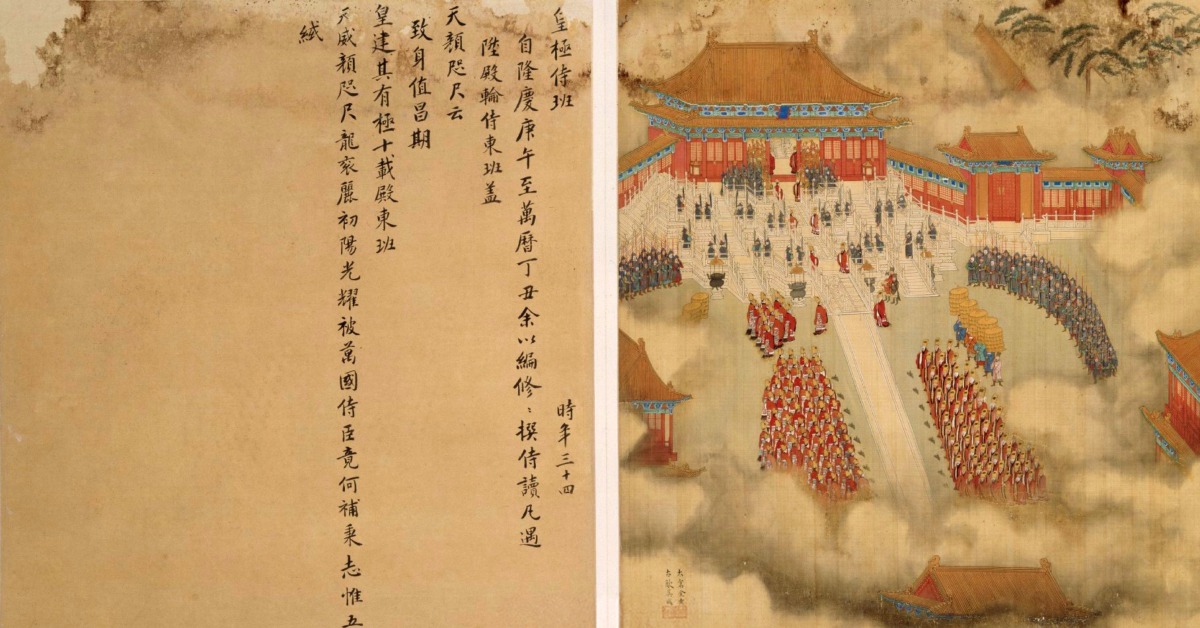 皇極侍班
時年三十四
自隆慶庚午至萬曆丁丑余以編修〻撰侍讀凡遇
陞殿輪侍東班蓋
天顏咫尺云
致身值昌期
皇建其有極十載殿東班
天威顏咫尺龍袞麗初陽光耀被萬國侍臣竟何補秉志惟五
緎